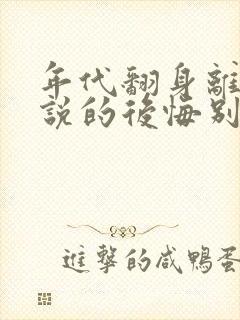 年代翻身離
説的後悔別
進擊的咸鴨蛋